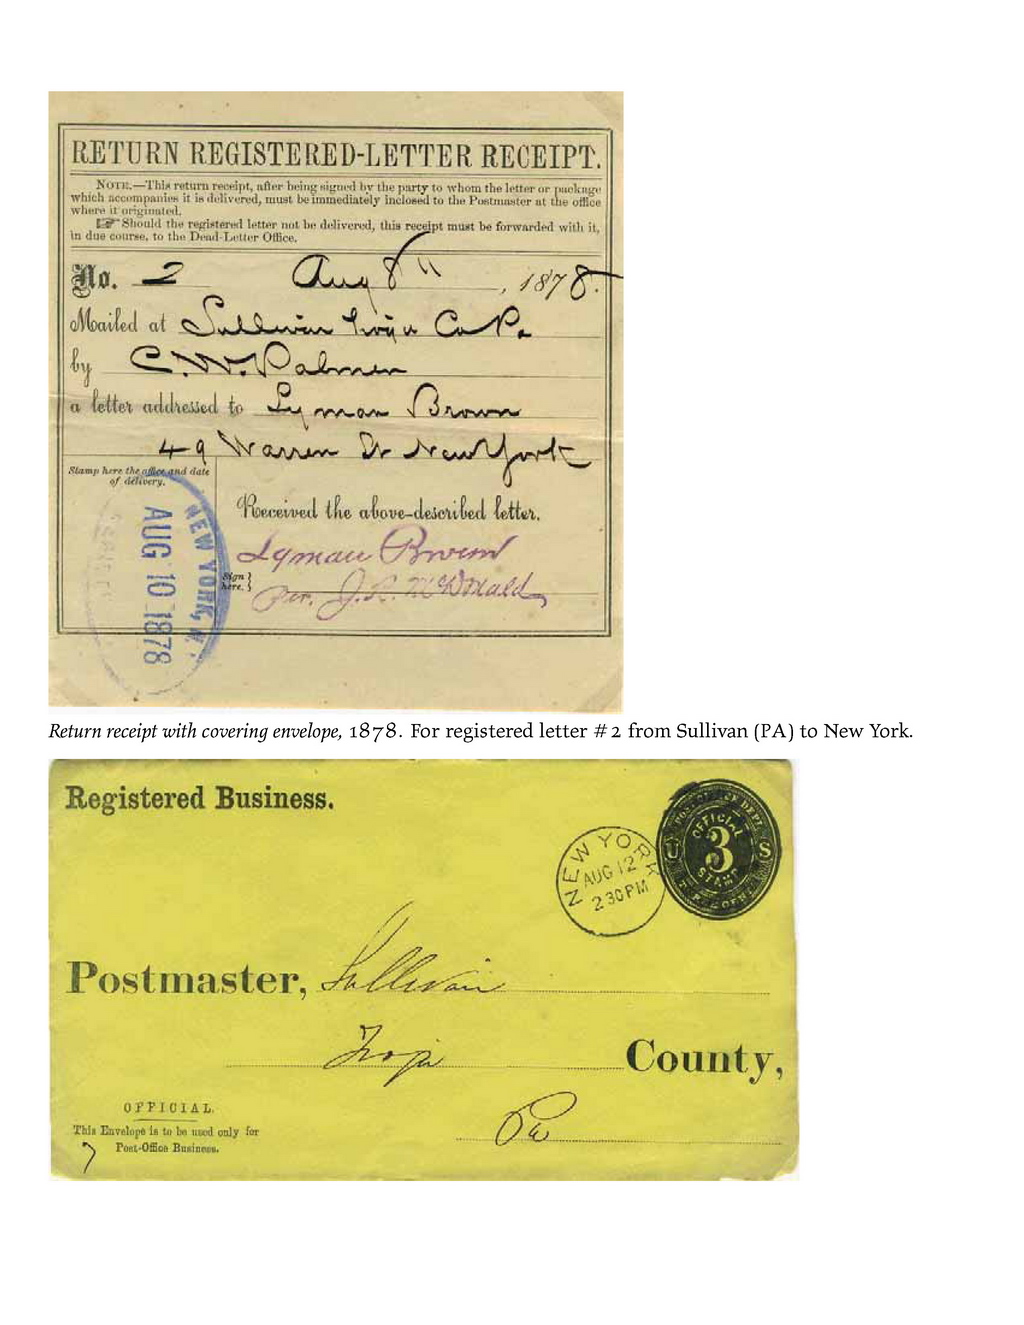 RETURN REGISTERED-LETTER RECEIPT.
NOTE.—This return receipt, after being signed by the party to whom the letter or package
which accompanies it is delivered, must be immediately inclosed to the Postmaster at the office
where it originated.
☞ Should the registered letter not be delivered, this receipt must be forwarded with it,
in due course, to the Dead-Letter Office.
No. 2 Aug 8" , 1878.
Mailed at Sullivan Tioga Co Pa.
by C. W. Palmer
a letter addressed to Lyman Brown
49 Warren St New York
Stamp here the office and date
of delivery.
Received the above-described letter.
Lyman Brown
Sign
here.
Per. J. R. McDonald
NEW YORK, N.Y.
AUG 10 1878
Return receipt with covering envelope, 1878. For registered letter #2 from Sullivan (PA) to New York.
Registered Business.
POST OFFICE DEPT.
OFFICIAL
U 3 S
STAMP
NEW YORK
AUG 12
2 30 PM
Postmaster, Sullivan
Tioga County,
Pa
OFFICIAL.
This Envelope is to be used only for
Post-Office Business.
7